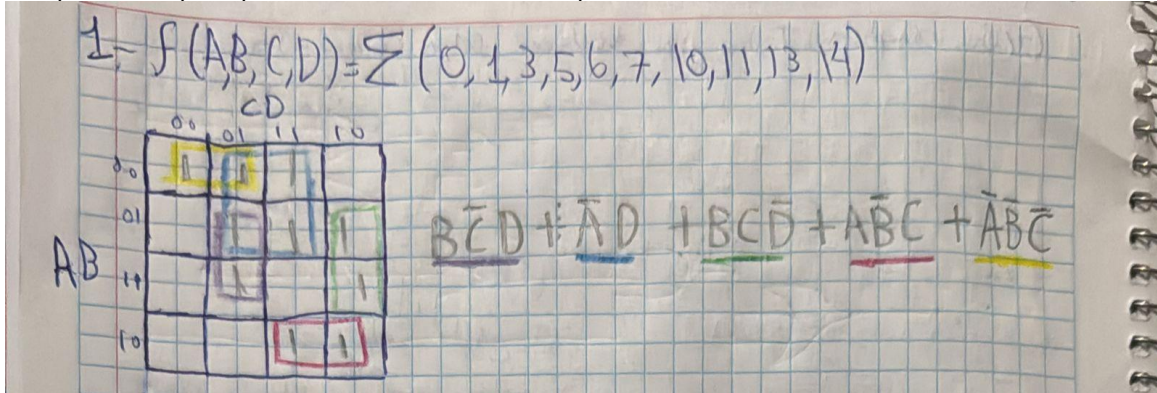 1- f(A,B,C,D)=Σ(0,1,3,5,6,7,10,11,13,14)
CD
00 01 11 10
00 1 1 1
01 1 1 1
AB
11 1 1
10 1 1
BC̄D + ĀD + BCD̄ + AB̄C + ĀB̄C̄